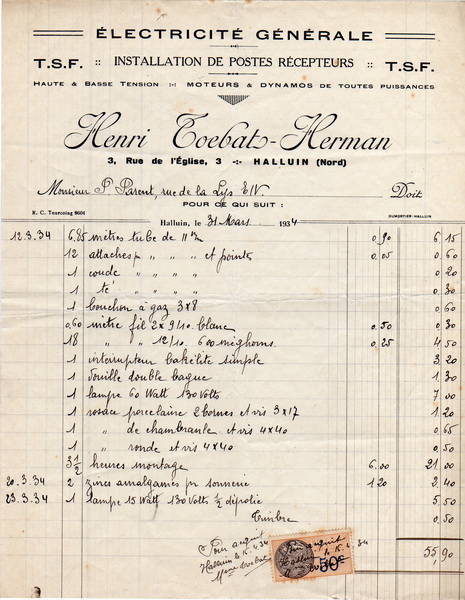 ÉLECTRICITÉ GÉNÉRALE
T.S.F. :: INSTALLATION DE POSTES RÉCEPTEURS :: T.S.F.
HAUTE & BASSE TENSION :-: MOTEURS & DYNAMOS DE TOUTES PUISSANCES
Henri Toebat-Herman
3, Rue de l'Église, 3 -:- HALLUIN (Nord)
Monsieur P. Parent, rue de la Lys E/V Doit
POUR CE QUI SUIT :
R. C. Tourcoing 9604 DUMORTIER-HALLUIN
Halluin, le 31 Mars 1934
12.3.34 6,85 mètres tube de 11 m/m 0,90 6 15
12 attaches pr " " " et pointes 0,05 0,60
1 coude " " " " 0,20
1 té " " " " 0,30
1 bouchon à gaz 3x8 0,60
0,60 mètre fil 2 x 9/10 blanc 0,50 0,30
18 " " 12/10 600 méghoms 0,25 4,50
1 interrupteur bakélite simple 3,20
1 douille double bague 1,30
1 lampe 60 Watt 130 Volts 7,00
1 rosace porcelaine 2 bornes et vis 3x17 1,20
1 " de chambranle et vis 4x40 0,65
1 " ronde et vis 4x40 0,50
3 1/2 heures montage 6,00 21,00
20.3.34 2 zincs amalgamés pr sonnerie 1,20 2,40
23.3.34 1 lampe 15 Watt 130 Volts 1/2 dépolie 5,50
Timbre 0,50
55,90
Pour acquit
Halluin le 15.4.34
Mme Toebat
Pour acquit
Halluin le 15.4.34
50c